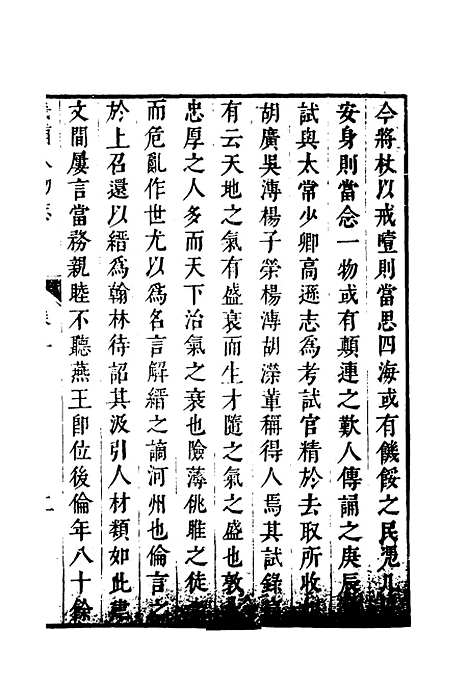 今將杖以戒噎則當思四海或有饑餒之民凭几
安身則當念一物或有顛連之歎人傳誦之庚辰
試與太常少卿高遜志為考試官精於去取所收
胡廣吳溥楊子榮楊溥胡濙輩稱得人焉其試錄
有云天地之氣有盛衰而生才隨之氣之盛也敦
忠厚之人多而天下治氣之衰也險薄佻雕之徒
而危亂作世尤以為名言解縉之謫河州也倫言之
於上召還以縉為翰林待詔其汲引人材類如此建
文間屢言當務親睦不聽燕王即位後倫年八十餘
人物志